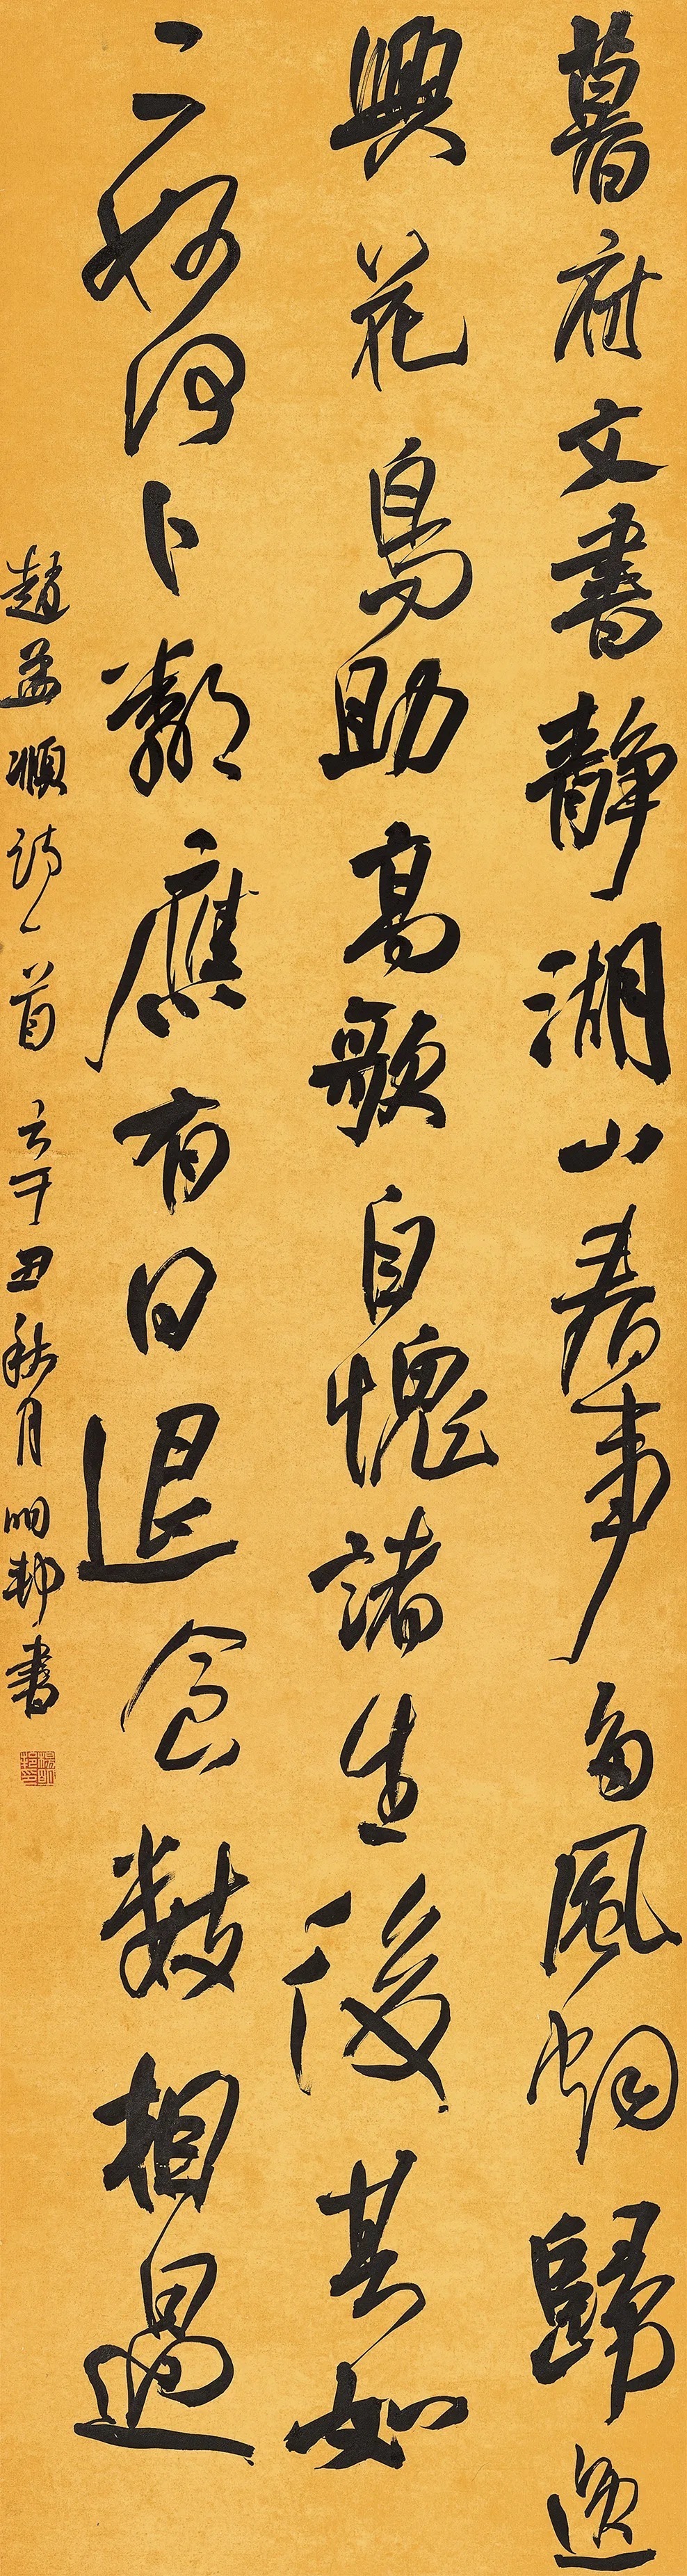 暮府文書靜湖山春事多風烟歸逸
興花鳥助高歌自愧諸生後其如
二妙何卜鄰應有日退食數相過
趙孟頫詩一首 辛丑秋月明邨書